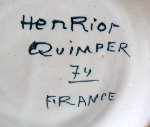 HenRiot
QUIMPER
74
FRANCE